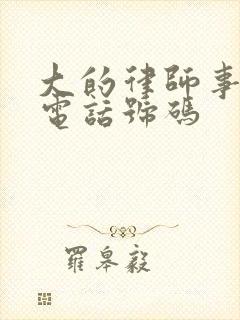 大的律師事
電話號碼
羅皋毅